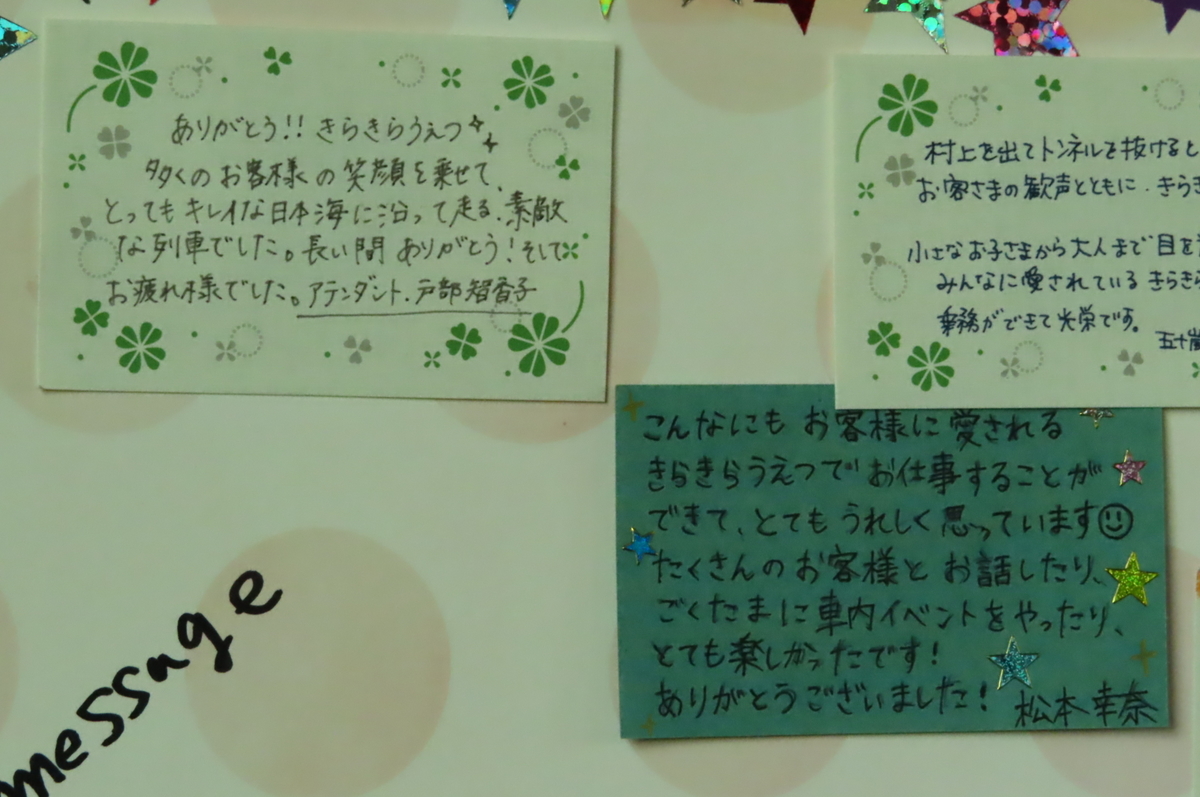 ありがとう!! きらきらうえつ
多くのお客様の笑顔を乗せて、
とってもキレイな日本海に沿って走る、素敵
な列車でした。長い間 ありがとう!そして
お疲れ様でした。アテンダント、戸部智香子
村上を出てトンネルを抜けると
お客さまの歓声とともに、きらき
小さなお子さまから大人まで目を
みんなに愛されているきらきら
乗務ができて光栄です。
五十嵐
こんなにも お客様に愛される
きらきらうえつで お仕事することが
できて、とても うれしく思っています☺
たくさんのお客様と お話したり、
ごくたまに車内イベントをやったり、
とても楽しかったです!
ありがとうございました! 松本幸奈
message